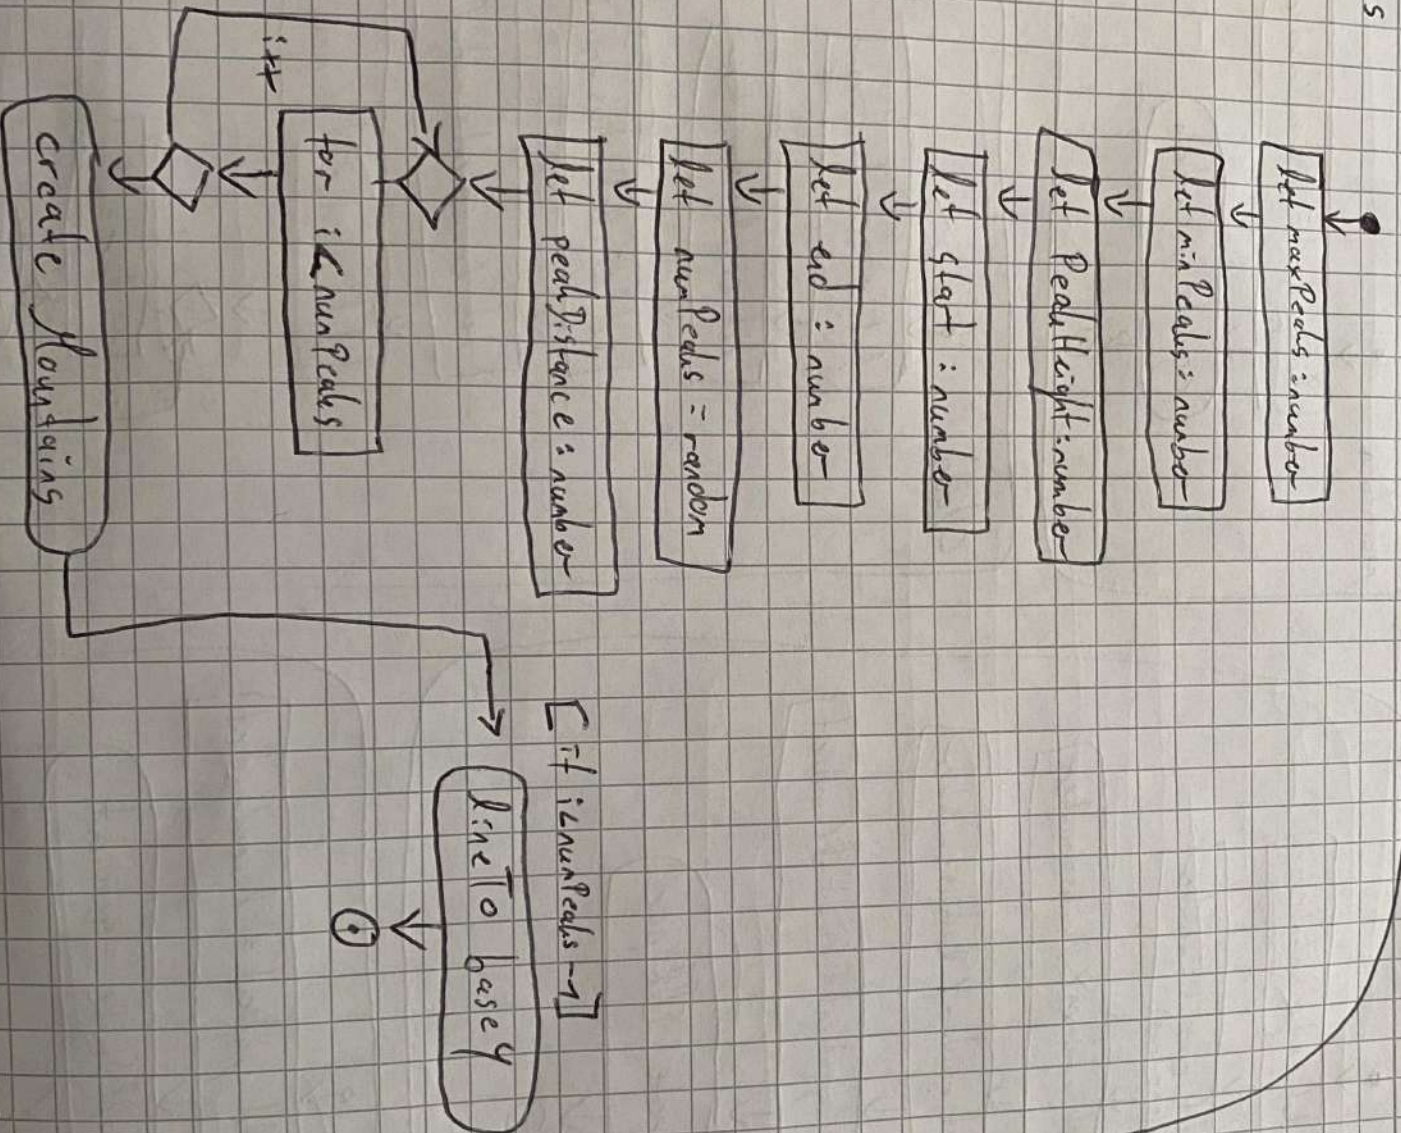 s
let maxPeaks : number
let minPeaks : number
let PeakHeight : number
let start : number
let end : number
let numPeaks = random
let peakDistance : number
for i<numPeaks
i++
create Mountains
[if i<numPeaks -1]
lineTo base y